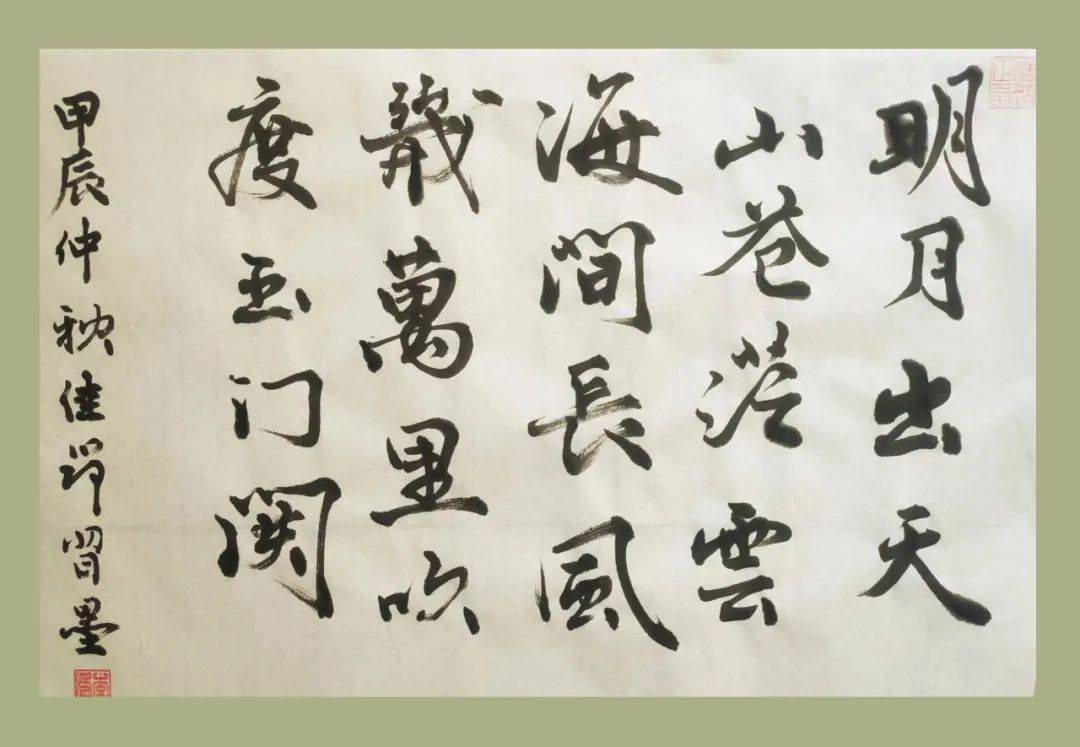 明月出天
山苍茫雲
海間長風
幾萬里吹
度玉门関
甲辰仲秋佳習墨